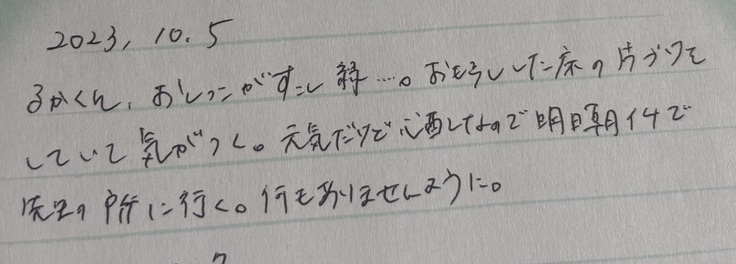 2023, 10. 5
るかくん、おしっこがすこし緑…。おもらしした床の片づけを
していて気がつく。元気だけど心配なので明日朝イチで
先生の所に行く。何もありませんように。